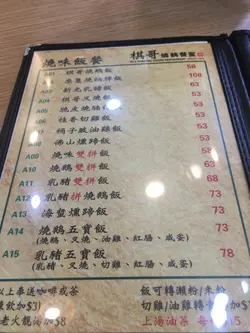 燒味飯餐 棋哥燒鵝餐室
A01 棋哥燒鵝飯 58
A02 燒鵝髀飯 108
A03 乳豬飯 63
A04 棋哥叉燒飯 53
A05 燒 飯 53
A06 桂香切雞飯 53
A07 桶子豉油雞飯 53
A08 佛山燻蹄飯 53
A09 燒味雙拼飯 58
A10 燒鵝雙拼飯 63
A11 乳豬雙拼飯 68
A12 乳豬拼燒鵝飯 73
A13 海蜇燻蹄飯 63
A14 燒鵝五寶飯 73
(燒鵝、叉燒、油雞、紅腸、咸蛋)
A15 乳豬五寶飯 78
(乳豬、叉燒、切雞、紅腸、咸蛋)
以上奉送咖啡或茶 飯可轉瀨粉/米粉
凍飲加$3) 切雞/油雞轉
老火靚湯加$8 上湯油菜 每